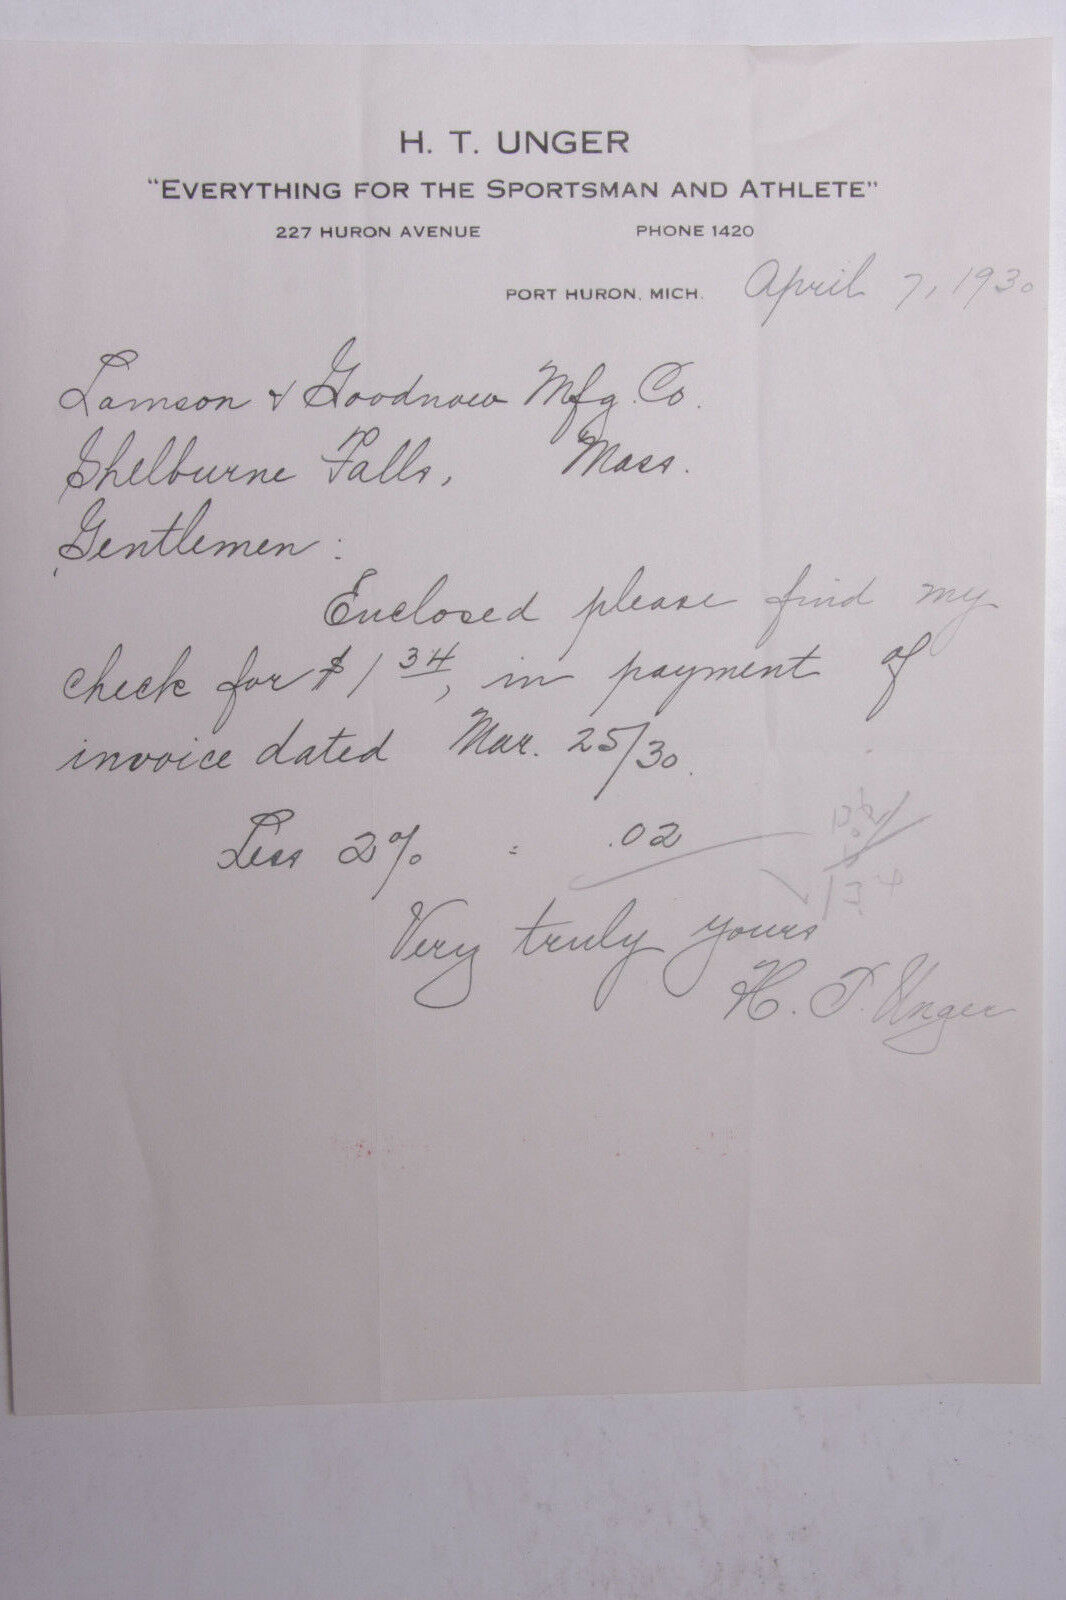 H. T. UNGER
"EVERYTHING FOR THE SPORTSMAN AND ATHLETE"
227 HURON AVENUE PHONE 1420
PORT HURON, MICH. April 7, 1930
Lamson & Goodnow Mfg. Co.
Shelburne Falls, Mass.
Gentlemen:
Enclosed please find my
check for $1 34, in payment of
invoice dated Mar. 25/30.
Less 2% = .02
134
Very truly yours
H. T. Unger